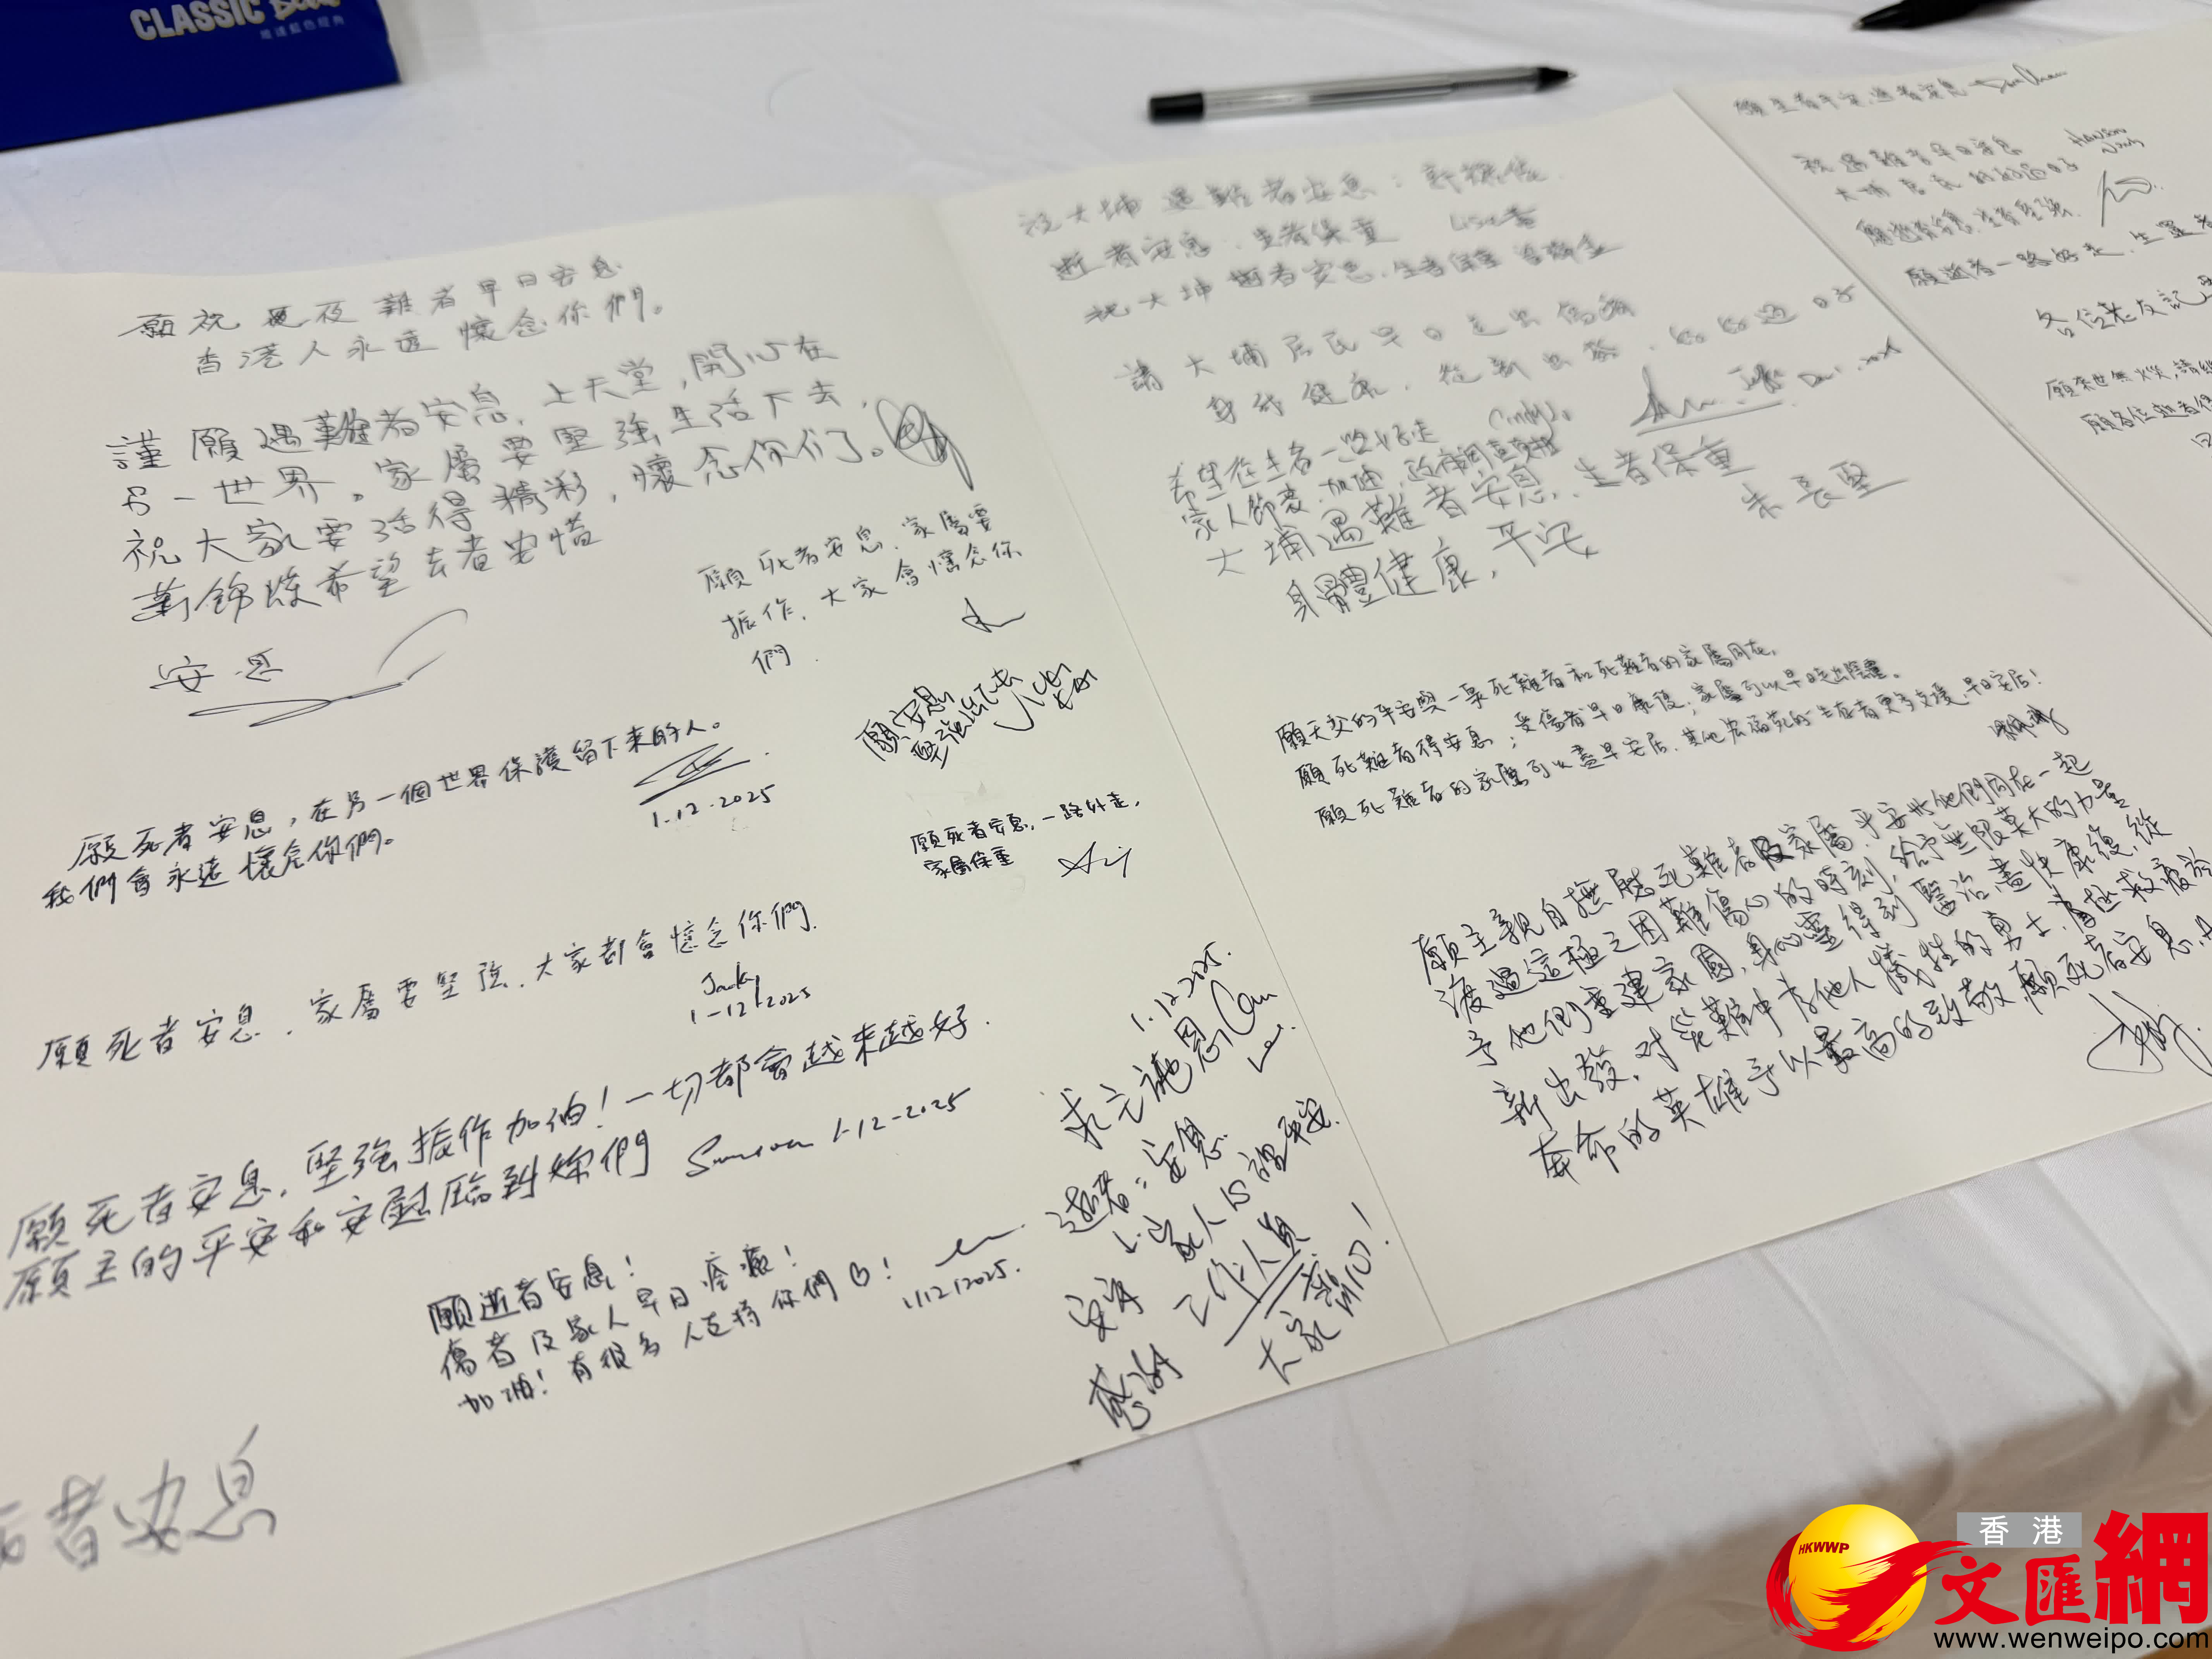 CLASSIC
願祝 死难者早日安息
香港人永遠懷念你們。
謹願遇難者安息,上天堂,開心在
另一世界。家屬要堅強生活下去,
祝大家要活得精彩,懷念你们了。
希望去者安息
安息
願死者安息,家屬要
振作,大家會懷念你
們.
願安息
堅強活下去
願死者安息,在另一個世界保護留下來的人。
我們會永遠懷念你們。
1.12.2025
願死者安息,一路好走,
家屬保重
願死者安息,家屬要堅強,大家都會懷念你們.
Jacky
1-12-2025
願死者安息,堅強振作加油!一切都會越來越好.
願主的平安和安慰臨到你們
1-12-2025
願逝者安息!
傷者及家人早日痊癒!
加油!有很多人支持你們♡!
1/12/2025.
者安息
1.12.2025.
求主施恩
逝者:安息
家人
安好
感謝 工作人員
大家
祝大埔遇難者安息:
逝者安息,生者保重
祝大埔逝者安息,生者保重
請大埔居民早日走出傷痛
身我健康,從新出發,好好過日子
希望在生者一路好走 Cindy
家人節哀,加油,
大埔遇難者安息,生者保重
身體健康,平安
願天父的平安與一眾死難者和死難者的家屬同在,
願死難者得安息;受傷者早日康復;家屬可以早日走出陰霾。
願死難者的家屬可以盡早安居,其他宏福苑的生存者更多支援,早日安居!
願主親自撫慰死難者及家屬,平安與他們同在一起
渡過這極之困難傷心的時刻,給予無限莫大的力量
予他們重建家園,身心靈得到醫治,盡快康復,從
新出發,對災難中為他人犧牲的勇士,為拯救疲於
奔命的英雄予以最高的致敬,願死者安息,
願生者平安,逝者安息
祝遇難者早日安息
大埔居民好好過日子
願逝者安息,生者堅強.
願逝者一路好走,生還者
各位老友記
願來世無火災,請
願各位逝者
HKWWP
香港
文匯網
www.wenweipo.com